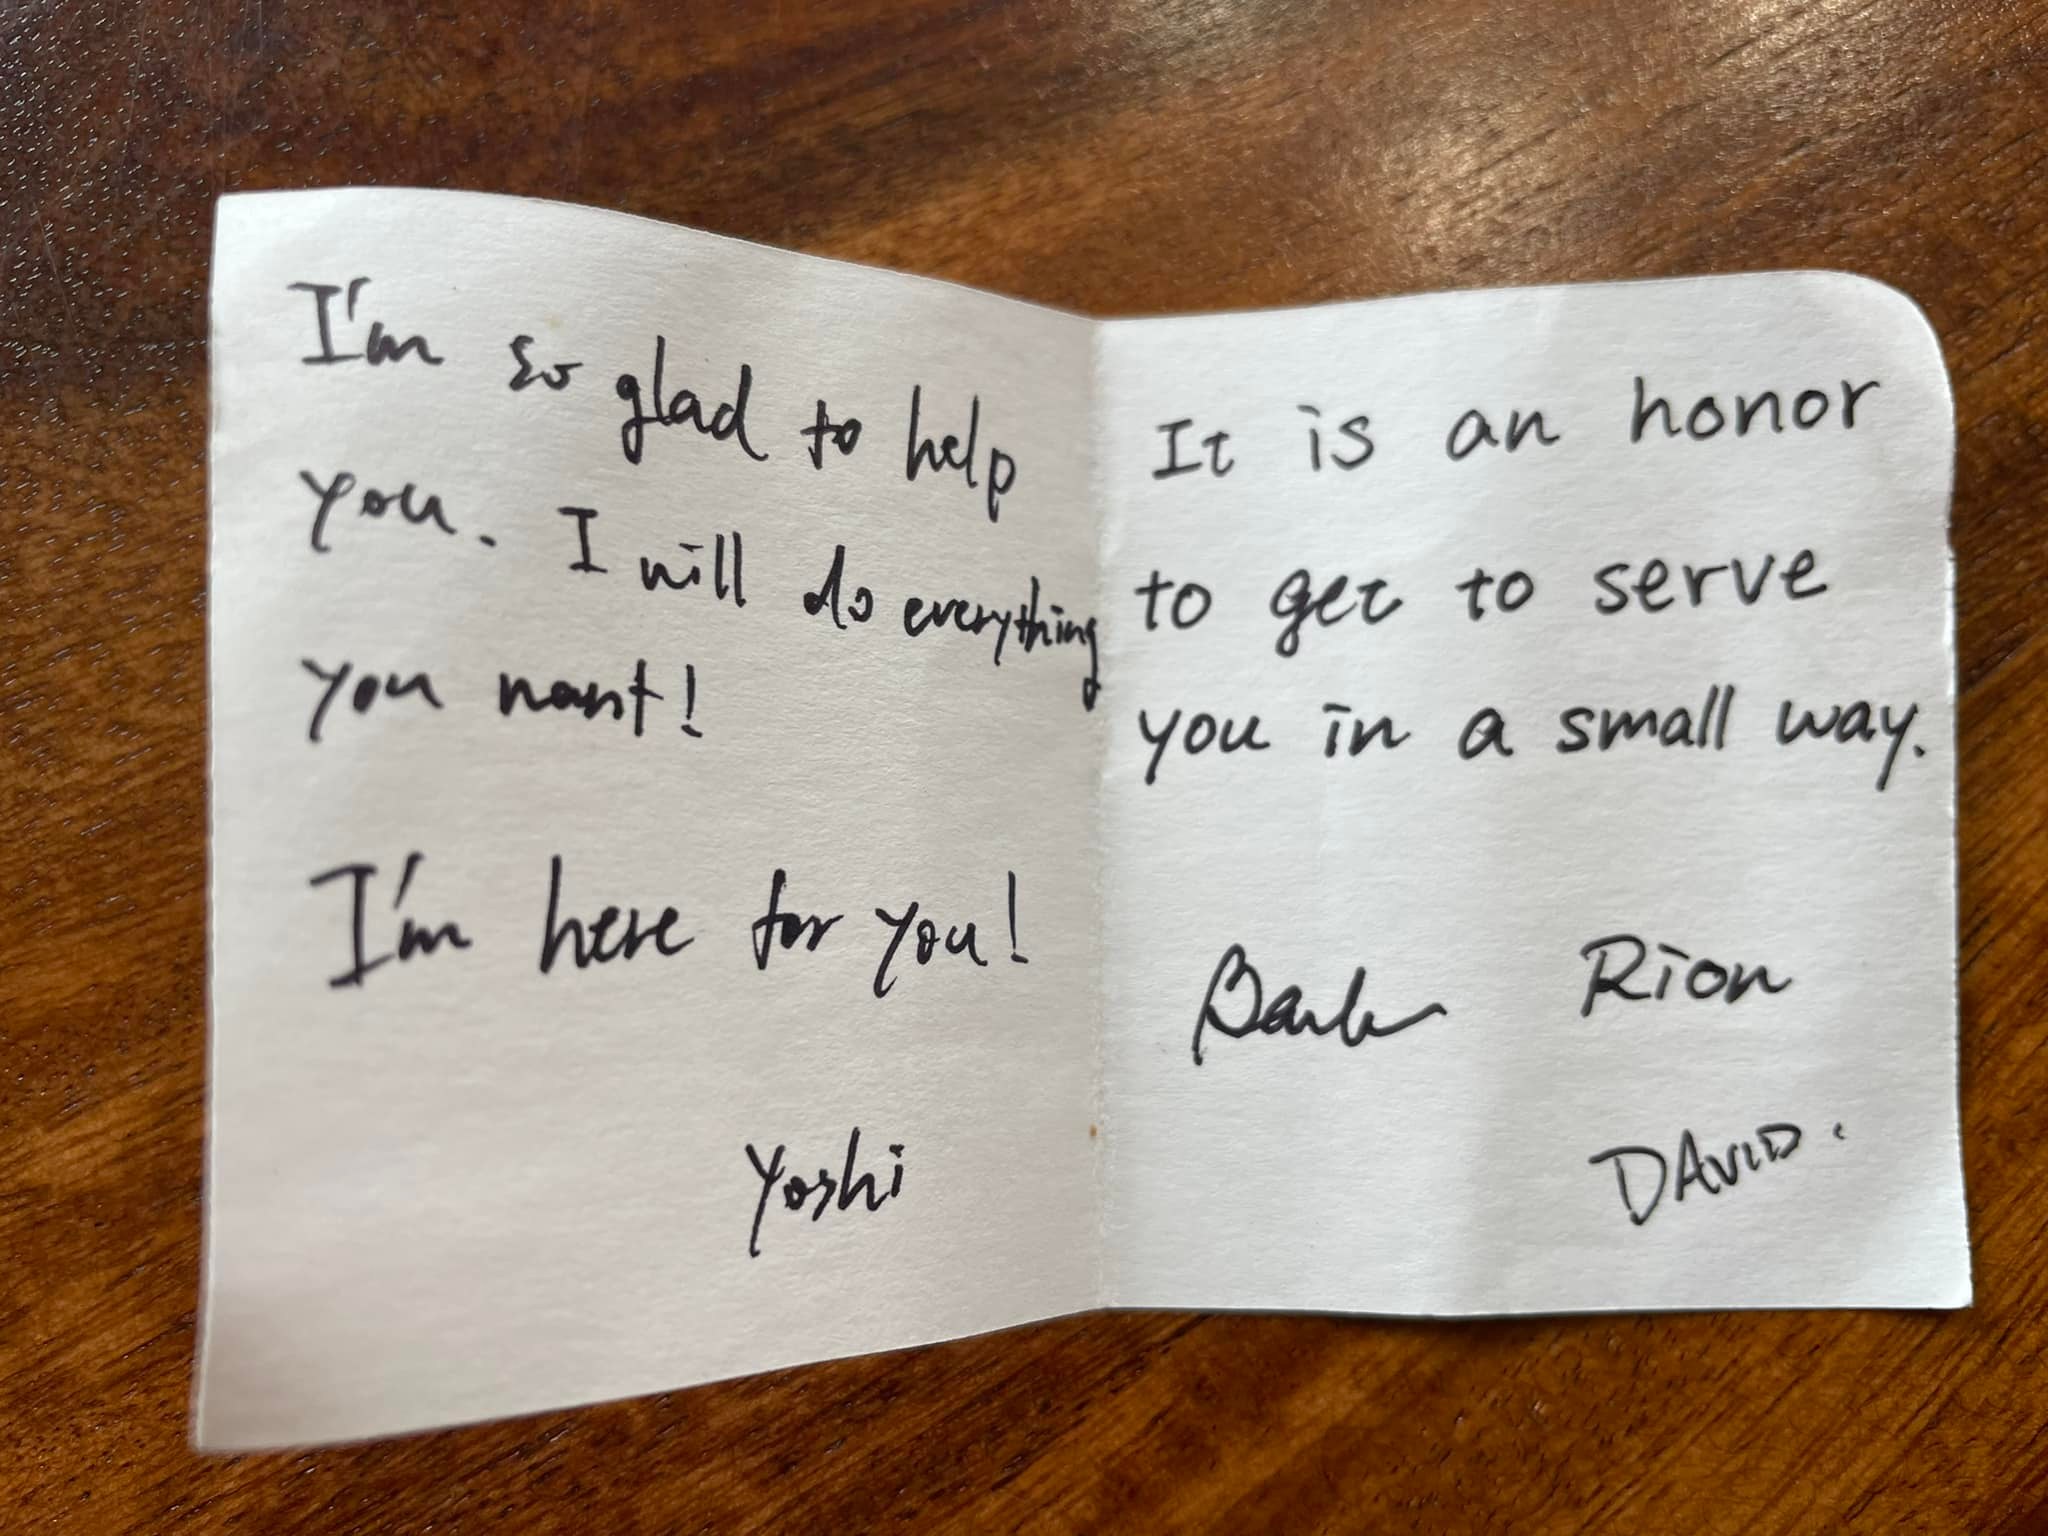 I'm so glad to help
you. I will do everything
you want!
I'm here for you!
Yoshi
It is an honor
to get to serve
you in a small way.
Rion
DAVID.